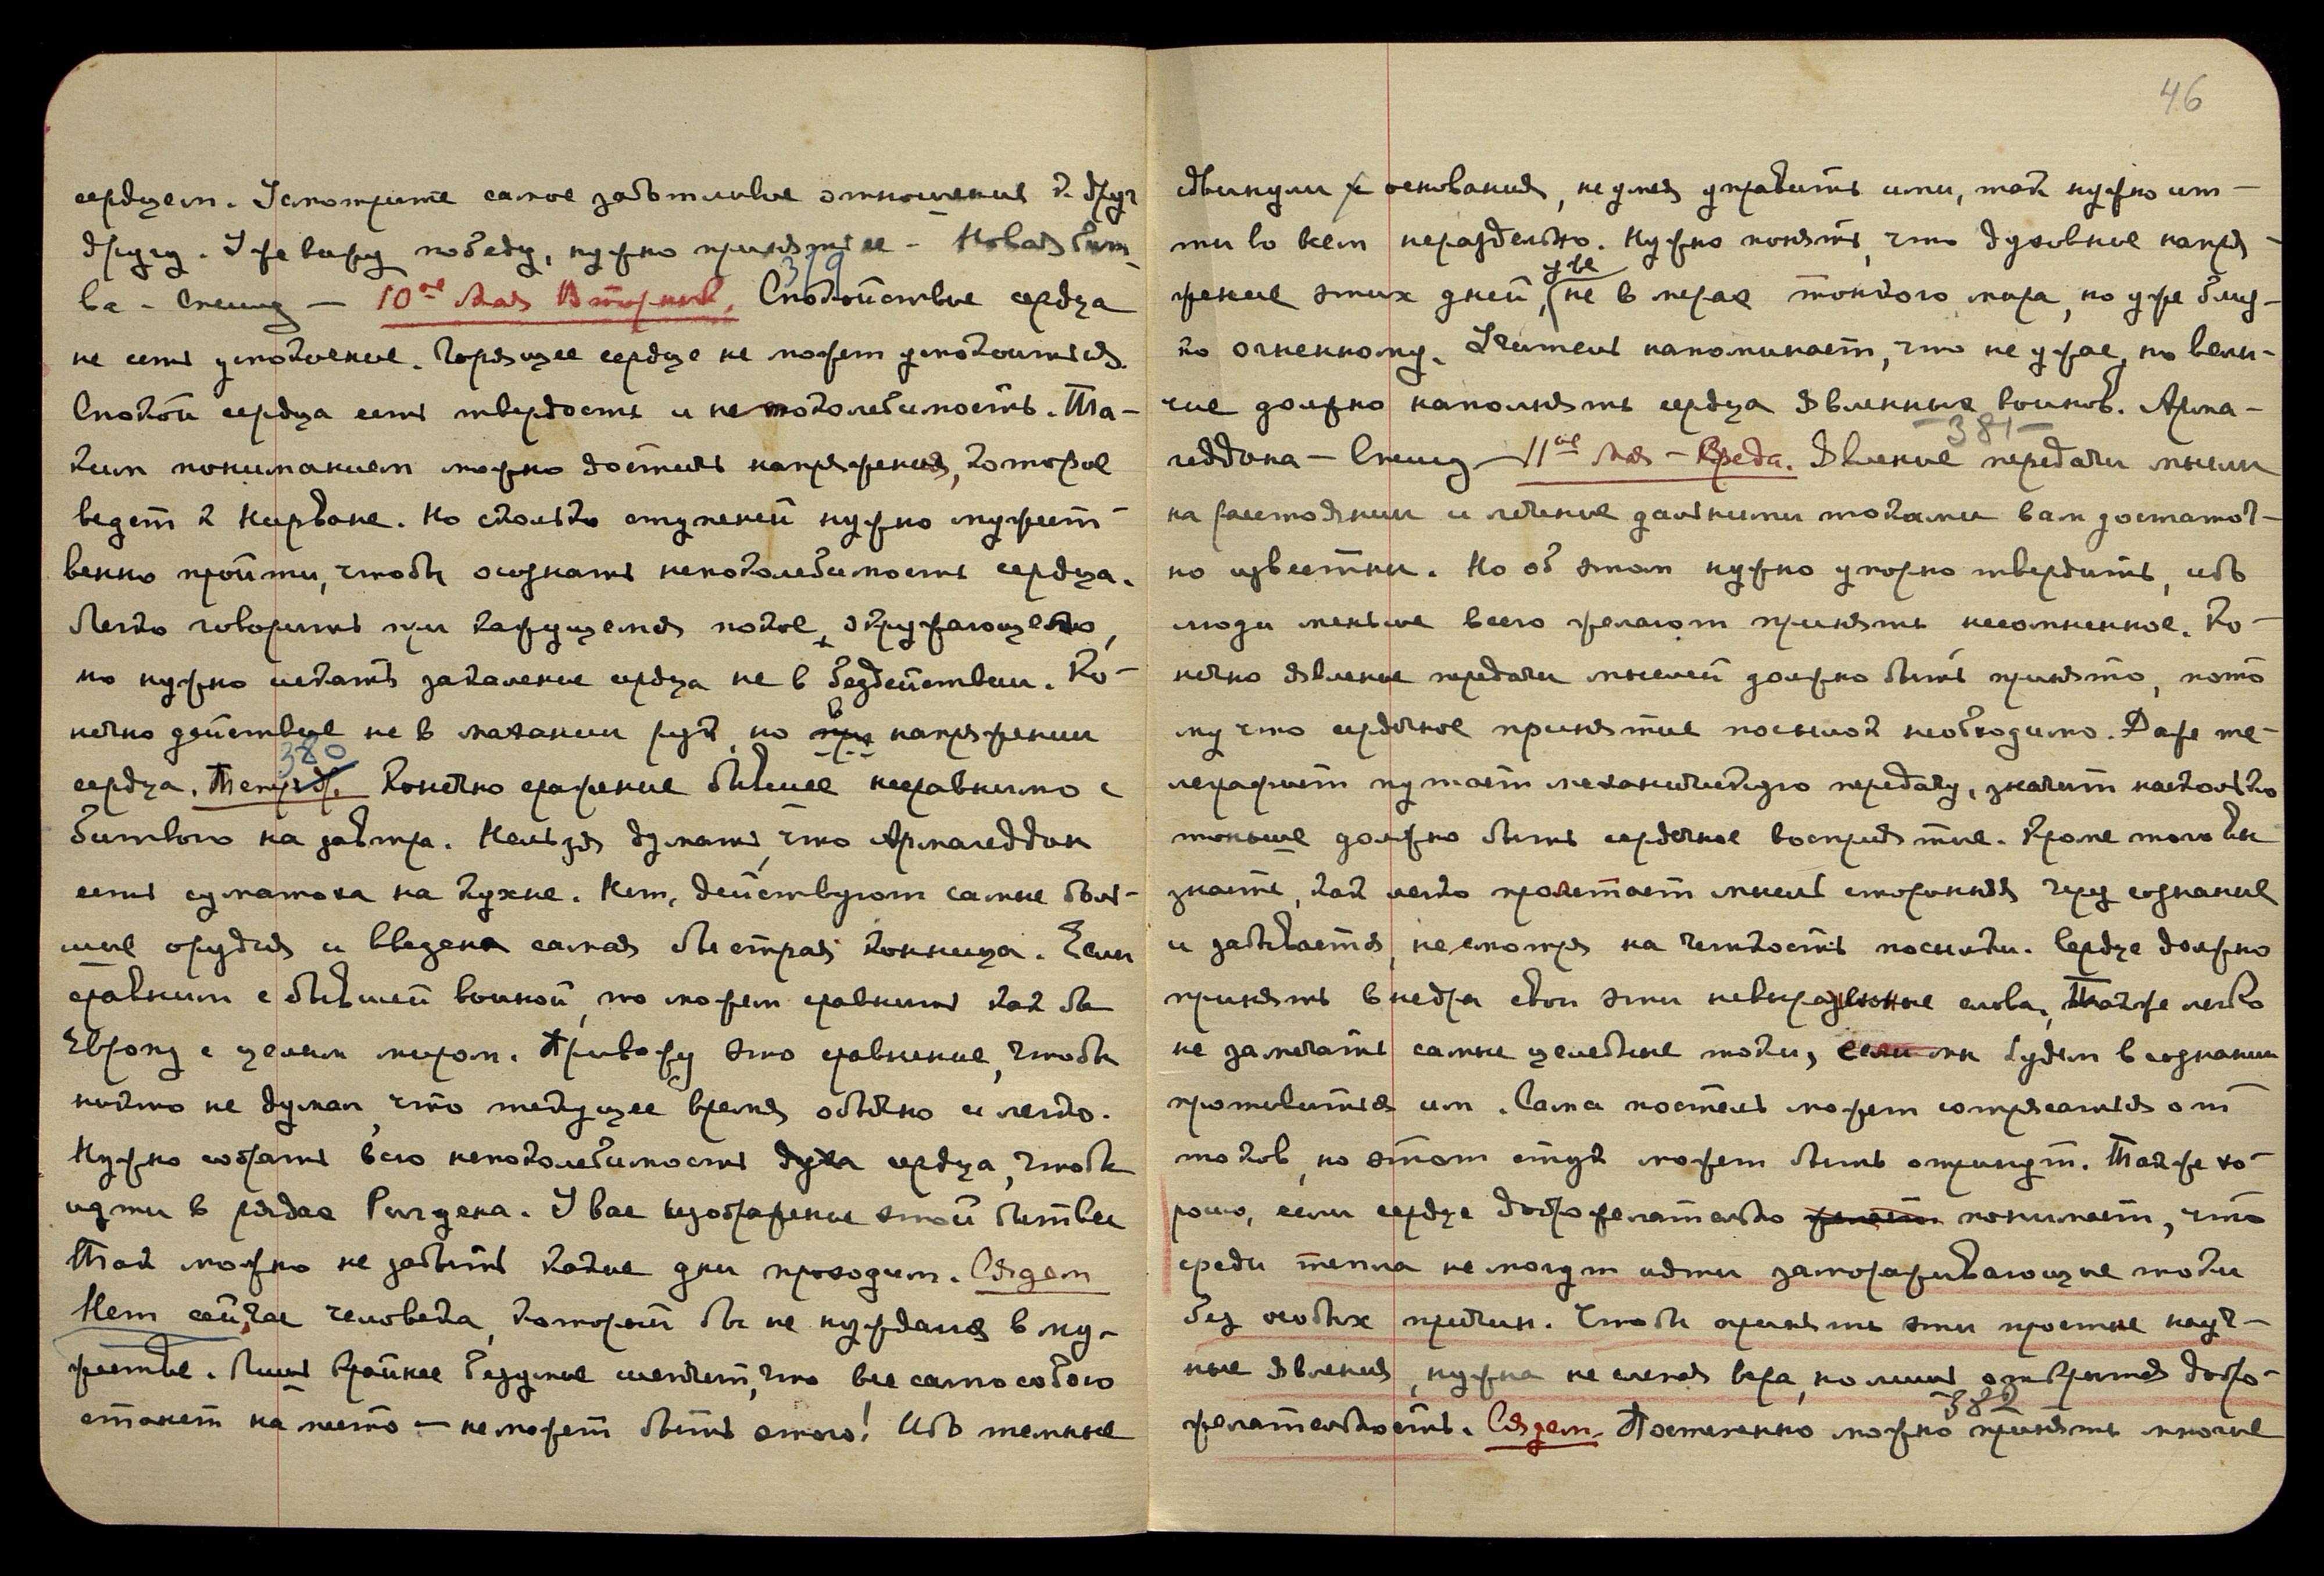 сердцем. Усмотрите самое заботливое отношение к друг
другу. Уже вижу победу, нужно принять ее – Новая бит-
ва – Спешу – 10ое Мая Вторник. 379 Спокойствие сердца
не есть успокоение. Горящее сердце не может успокоиться.
Спокой сердца есть твердость и непоколебимость. Та-
ким пониманием можно достичь напряжения, которое
ведет к Нирване. Но сколько ступеней нужно мужест-
венно пройти, чтобы осознать непоколебимость сердца.
Легко говорить при кажущемся покое окружающего,
но нужно искать закаление сердца не в бездействии. Ко-
нечно действие не в махании рук, но в при напряжении
сердца. 380 Конечно сражение бывшее несравнимо с
битвою на завтра. Нельзя думать, что Армагеддон
есть суматоха на кухне. Нет, действуют самые боль-
шие орудия и введена самая быстрая конница. Если
сравним с бывшей войной, то можем сравнить как бы
Европу с целым миром. Привожу это сравнение, чтобы
никто не думал, что текущее время обычно и легко.
Нужно собрать всю непоколебимость духа сердца, чтобы
идти в рядах Ригдена. У вас изображение этой битвы
Так можно не забыть какие дни проходим. Сядем
Нет сейчас человека, который бы не нуждался в му-
жестве. Лишь крайнее безумие шепчет, что все само собою
станет на место – не может быть этого! Ибо темные
46
двинули основания, не умея управить ими, так нужно ит-
ти во всем нераздельно. Нужно понять, что духовное напря-
жение этих дней, уже не в мерах тонкого мира, но уже близ-
ко огненному. Учитель напоминает, что не ужас, но вели-
чие должно наполнять сердца явленных воинов. Арма-
геддона – Спешу – 11ое Мая – Среда. 381 Явление передачи мысли
на расстоянии и лечение дальними токами вам достаточ-
но известны. Но об этом нужно упорно твердить, ибо
люди меньше всего желают принять несомненное. Ко-
нечно явление передачи мыслей должно быть принято, пото
му что сердечное принятие посылок необходимо. Даже те-
леграфист путает механическую передачу, значит насколько
тоньше должно быть сердечное восприятие. Кроме того Вы
знаете, как легко пролетает мысль сторонняя через сознание
и забывается, несмотря на четкость посылки. Сердце должно
принять в недра свои эти невыраженные слова. Также легко
не замечать самые целебные токи, если мы будем в сознании
противиться им. Сама постель может сотрясаться от
токов, но этот стук может быть отринут. Также хо-
рошо, если сердце доброжелательно понимает, что
среди тепла не могут идти замораживающие токи
без особых причин. Чтобы принять эти простые науч-
ные явления, нужна не слепая вера, но лишь открытая добро-
желательность. Сядем. 382 Постепенно можно принять многие